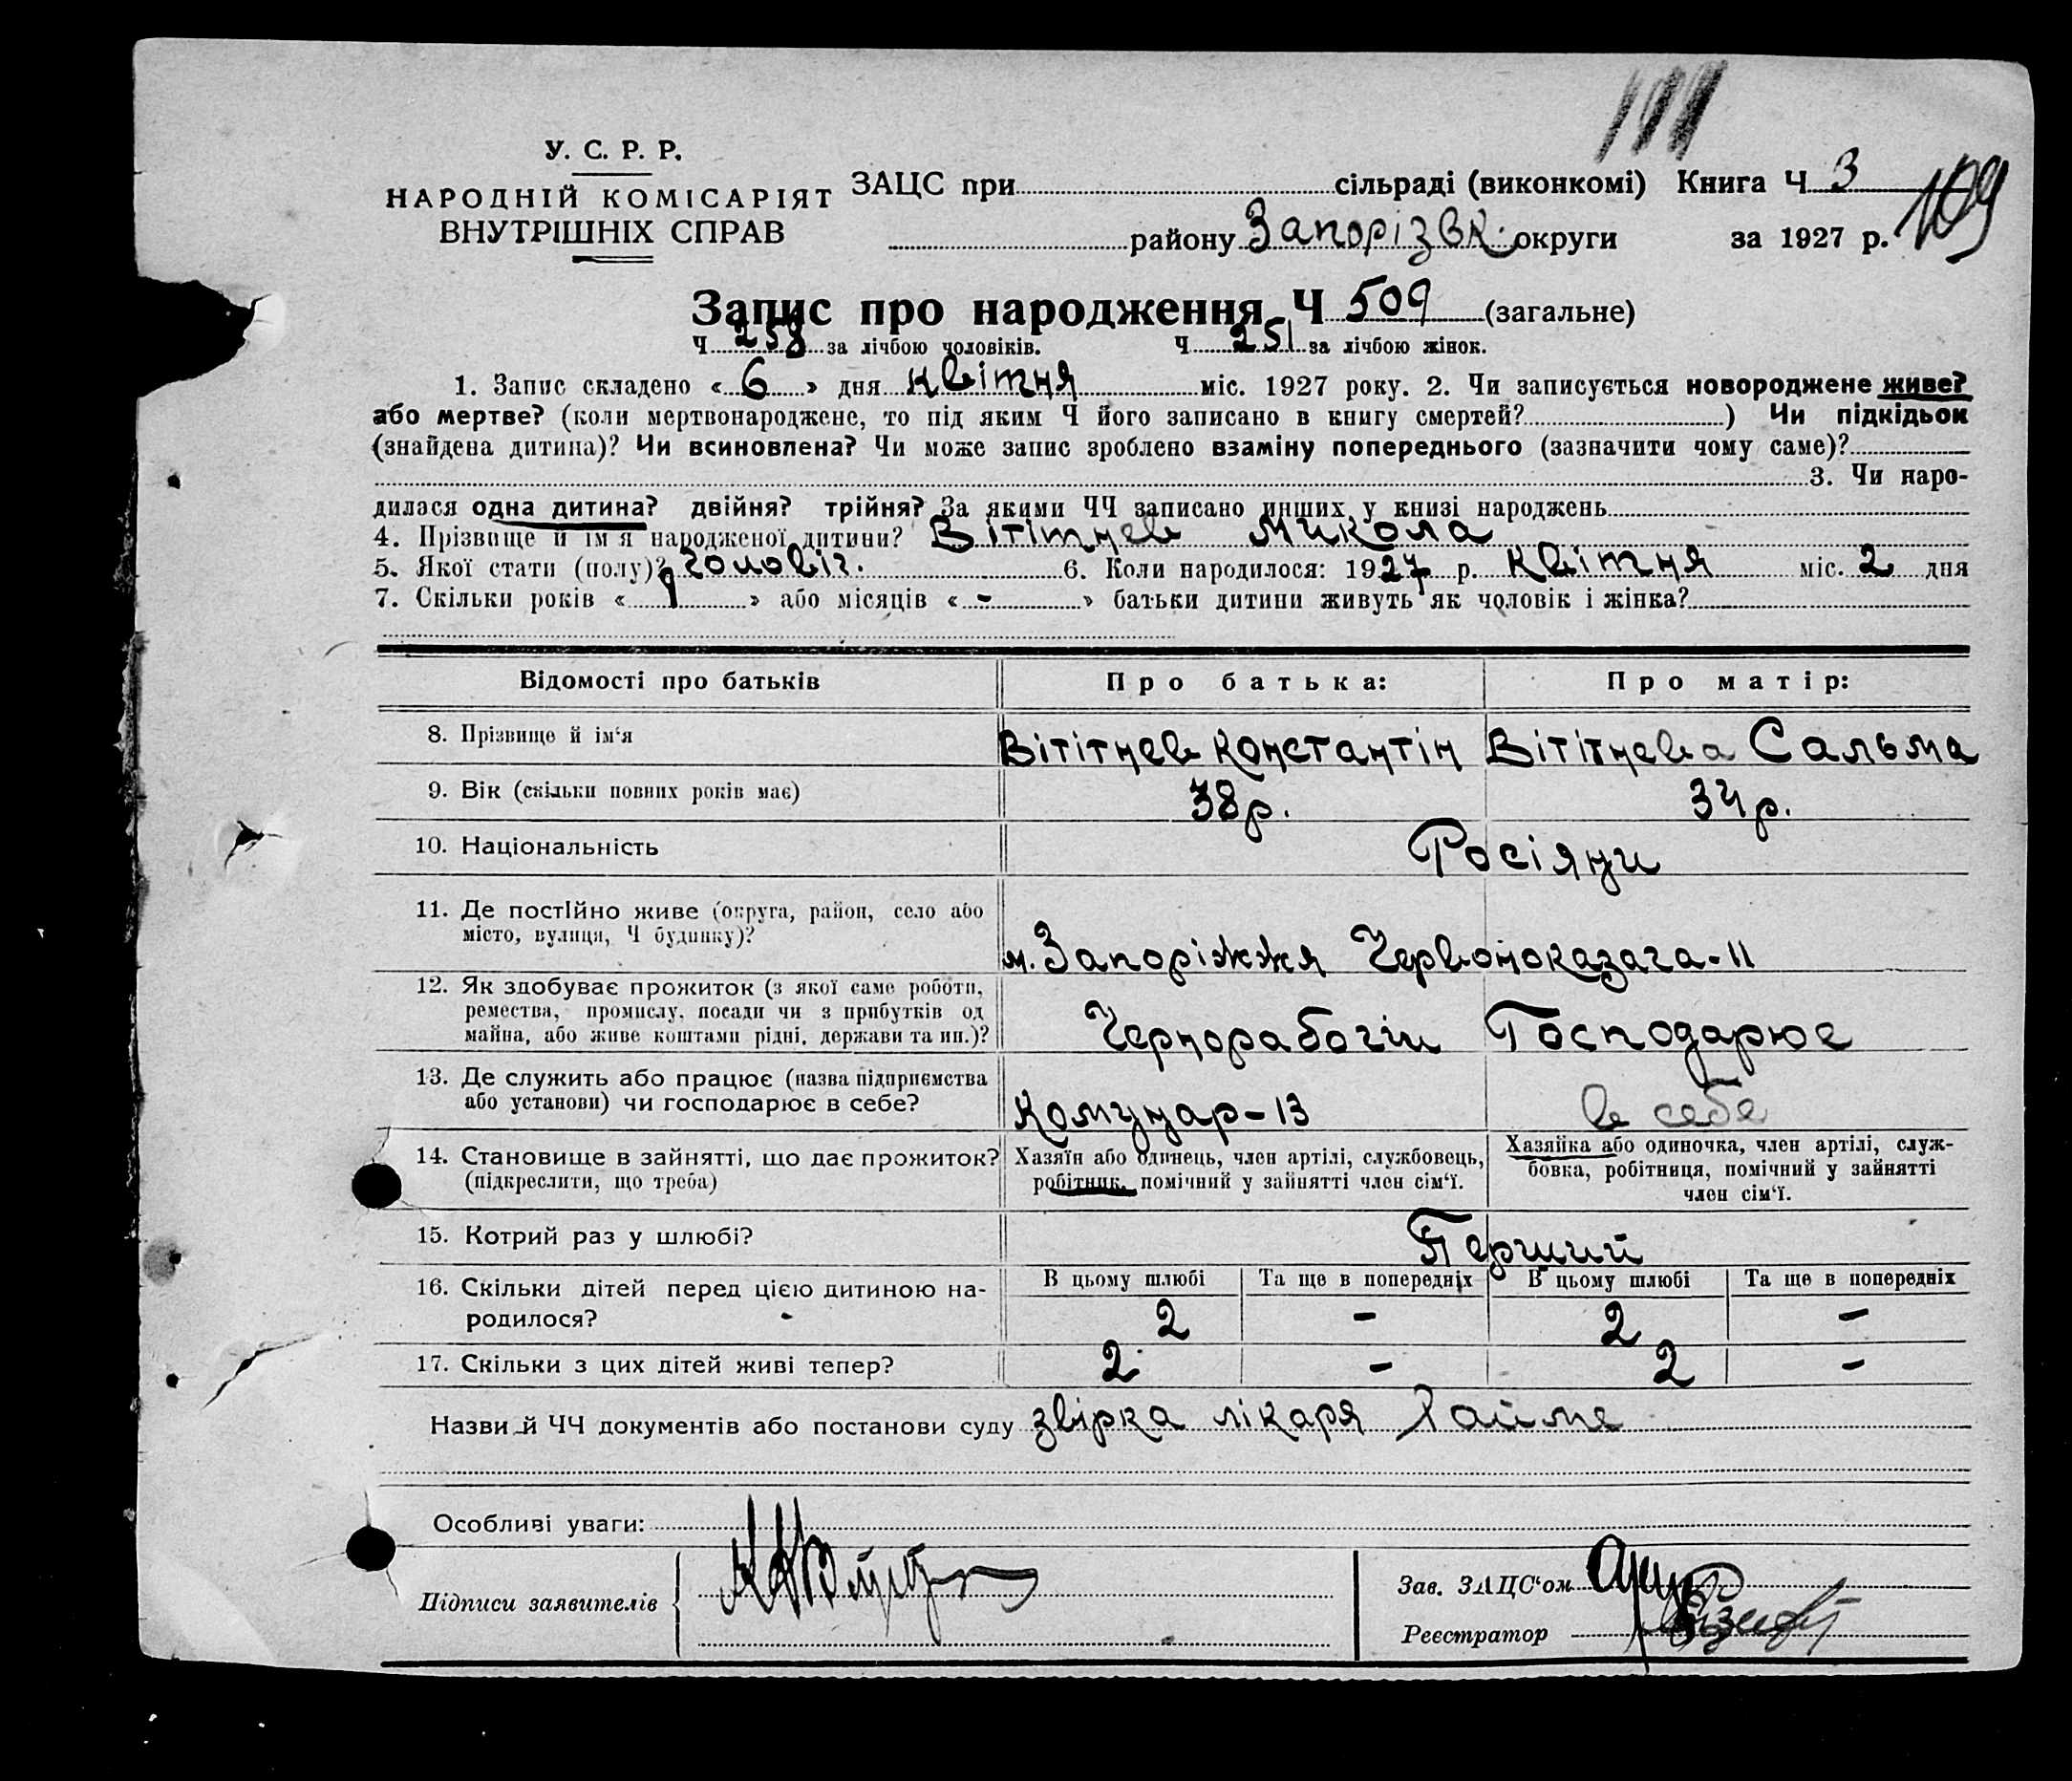 У. С. Р. Р.
НАРОДНІЙ КОМІСАРІЯТ
ВНУТРІШНІХ СПРАВ
ЗАЦС при сільраді (виконкомі) Книга Ч 3
109
району Запорізьк. округи за 1927 р.
Запис про народження Ч 509 (загальне)
Ч 258 за лічбою чоловіків. Ч 251 за лічбою жінок.
1. Запис складено « 6 » дня квітня міс. 1927 року. 2. Чи записується новороджене живе?
або мертве? (коли мертвонароджене, то під яким Ч його записано в книгу смертей? ) Чи підкідьок
(знайдена дитина)? Чи всиновлена? Чи може запис зроблено взаміну попереднього (зазначити чому саме)?
3. Чи наро-
дилася одна дитина? двійня? трійня? За якими ЧЧ записано инших у книзі народжень
4. Прізвище й ім'я народженої дитини? Вітітнев Микола
5. Якої стати (полу)? чоловіч. 6. Коли народилося: 1927 р. квітня міс. 2 дня
7. Скільки років « » або місяців « - » батьки дитини живуть як чоловік і жінка?
Відомості про батьків Про батька: Про матір:
8. Прізвище й ім'я Вітітнев Константін Вітітнева Сальма
9. Вік (скільки повних років має) 38 р. 34 р.
10. Національність Росіяни
11. Де постійно живе (округа, район, село або
місто, вулиця, Ч будинку)? м. Запоріжжя Червоноказача-11
12. Як здобуває прожиток (з якої саме роботи,
ремества, промислу, посади чи з прибутків од
майна, або живе коштами рідні, держави та ин.)? Чернорабочій Господарює
13. Де служить або працює (назва підприємства
або установи) чи господарює в себе? Комунар-13 в себе
14. Становище в зайнятті, що дає прожиток?
(підкреслити, що треба)
Хазяїн або одинець, член артілі, службовець,
робітник, помічний у зайнятті член сім'ї.
Хазяйка або одиночка, член артілі, служ-
бовка, робітниця, помічний у зайнятті
член сім'ї.
15. Котрий раз у шлюбі? Перший
В цьому шлюбі Та ще в попередніх В цьому шлюбі Та ще в попередніх
16. Скільки дітей перед цією дитиною на-
родилося? 2 - 2 -
17. Скільки з цих дітей живі тепер? 2 - 2 -
Назви й ЧЧ документів або постанови суду звірка лікаря
Особливі уваги:
Підписи заявителів
Зав. ЗАЦС'ом
Реєстратор